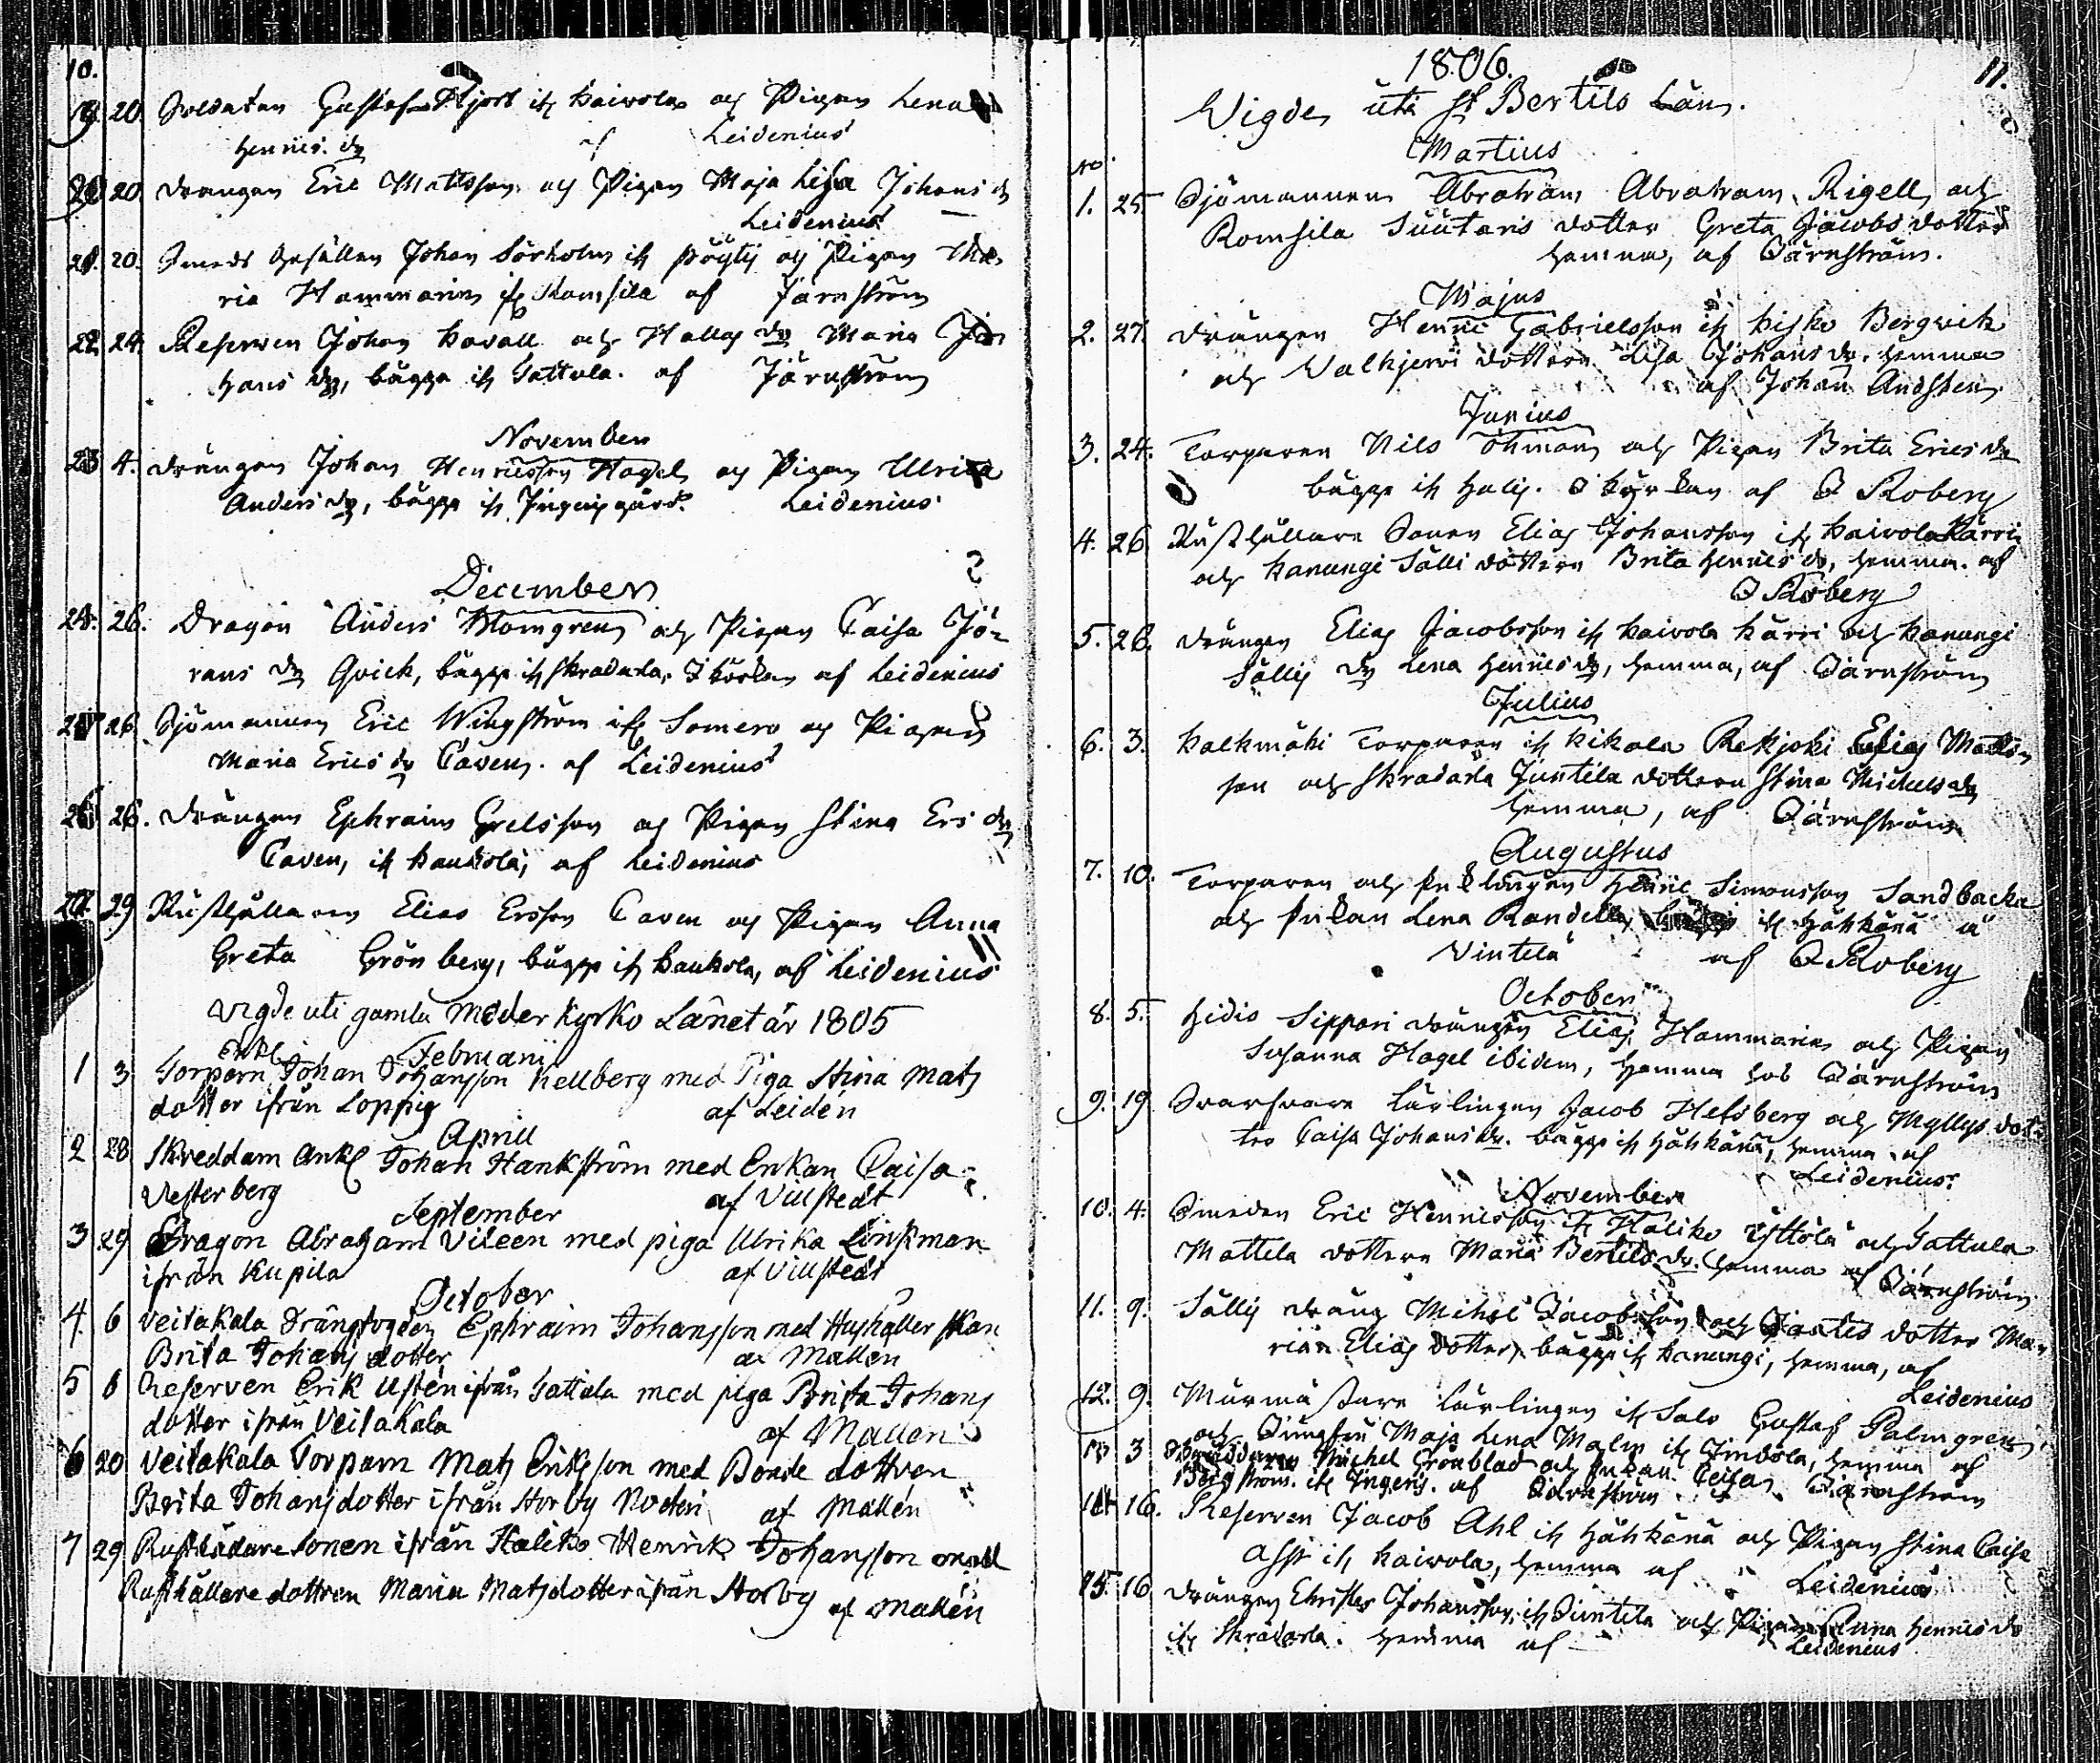 10.
19. 20. Soldaten Gustaf Hjort ifr Kaivola och Pigan Lena
Henrics dr af Leidenius
20. 20. Drängen Eric Mattsson och Pigan Maja Lisa Johans dr
Leidenius
21. 20. Smeds Gesällen Johan Sörholm ifr Pöytij och Pigan Ma-
ria Hammarin ifr Romsila af Järnström
22. 24. Reserven Johan Kavall och Hallas dr Maria Jo-
hans dr, bägge ifr Sattula. af Järnström
November
23 4. Drängen Johan Henricsson Hagel och Pigan Ulrica
Anders dr, bägge ifr Leidenius
December
24. 26. Dragon Anders Blomgren och Pigan Caisa Jö-
rans dr Qvick, bägge ifr Skradarla, af Leidenius
25 26. Sjömannen Eric Wingström ifr Somero och Pigan
Maria Erics dr Caven. af Leidenius
26 26. Drängen Ephraim Grelsson och Pigan Stina Ers dr
Caven, ifr Kaukola, af Leidenius
27. 29 Rusthållaren Elias Ersson Caven och Pigan Anna
Greta Grönberg, bägge ifr Kaukola, af Leidenius
Vigde uti gamla Moderkyrko Länet år 1805
Februarii
1 3 Torparn Enkl Johan Johansson Kellberg med Piga Stina Mats
dotter ifrån Loppis af Leidén
Aprill
2 28 Skreddarn Ankl Johan Hankström med Enkan Caisa
Vesterberg af Villstedt
September
3 29 Dragon Abraham Vileen med piga Ulrika Linkman
ifrån Kupila af Villstedt
October
4. 6 Veitakala Drängfogden Ephraim Johansson med Hushållerskan
Brita Johans dotter af Mallen
5 6 Reserven Erik Ustén ifrån Sattula med piga Brita Johans
dotter ifrån Veitakala af Mallen
6 20 Veitakala Torparn Mats Eriksson med Bonde dottren
Brita Johansdotter ifrån Storby af Mallén
7 29 Rusthållare Sonen ifrån Haliko Henrik Johansson med
Rusthållare dottren Maria Matsdotter ifrån Storby af Mallén
11.
1806.
Vigde uti St Bertils Län.
Martius
No
1. 25. Sjömannen Abraham Abraham. Rigell och
Romsila Suutaris dotter Greta Jacobs dotter
hemma, af Järnström.
Majus
2. 27. Drängen Henric Gabrielsson ifr Kisko Bergvik
och Valkjervi dottern Lisa Johans dr. hemma
af Johan Andsten
Junius
3. 24. Torparen Nils Öhman och Pigan Brita Erics dr
bägge ifr Halij. i Kyrkan af O Roberg
4. 26. Rusthållare Sonen Elias Johansson ifr Kaivola Kärri
och Kanungi Sälli dottern Brita Henrics dr, hemma. af
O Roberg
5. 26. Drängen Elias Jacobsson ifr Kaivola Kärri och Kanungi
Sällij dr Lena Henrics dr, hemma, af Järnström
Julius
6. 3. Kalkmäki Torparen ifr Kikala Rekijoki Elias Matts-
son och Skradarla Juntila dottern Stina Michels dr
hemma, af Järnström
Augustus
7. 10. Torparen och Enklingen Henric Simonsson Sandbacka
och Enkan Lena Randell, ifr Håhkänä å
Vintelä af O Roberg
October
8. 5. Hidis Sippari Drängen Elias Hammarin och Pigan
Susanna Hagel ibidem, hemma hos Järnström
9. 19 Svarfvare Lärlingen Jacob Helsberg och Myllys dot-
ter Caisa Johans dr. bägge ifr Håhkänä, hemma af
Leidenius
November
10. 4. Smeden Eric Henricsson ifr Haliko Ylttölä och Sattula
Mattila dottern Maria Bertils dr. hemma af Järnström
11. 9. Sällij dräng Michel Jacobsson och dotter Ma-
ria Elias dotter, bägge ifr Kanungi, hemma, af
Leidenius
12. 9. Murmästare lärlingen ifr Salo Gustaf Palmgren
och Jungfru Maja Lena Malm ifr hemma af
Järnström
13 3 Skräddaren Michel Grönblad och Enkan Caisa
Bergström. ifr Ingeris. af Järnström
14 16. Reserven Jacob Ahl ifr Håhkänä och Pigan Stina Caisa
Asp ifr Kaivola, hemma af Leidenius
15. 16 Drängen Christer Johansson, ifr Juntila och Pigan Anna Henrics dr
ifr Skradarla. hemma af Leidenius